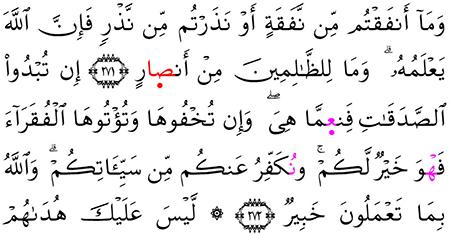 وَمَآ أَنفَقْتُم مِّن نَّفَقَةٍ أَوْ نَذَرْتُم مِّن نَّذْرٍ فَإِنَّ ٱللَّهَ
يَعْلَمُهُۥ ۗ وَمَا لِلظَّـٰلِمِينَ مِنْ أَنصارٍ ٢٧١ إِن تُبْدُواْ
ٱلصَّدَقَـٰتِ فَنِعمَّا هِىَ ۖ وَإِن تُخْفُوهَا وَتُؤْتُوهَا ٱلْفُقَرَآءَ
فَهْوَ خَيْرٌ لَّكُمْ ۚ وَنُكَفِّرُ عَنكُم مِّن سَيِّـَٔاتِكُمْ ۗ وَٱللَّهُ
بِمَا تَعْمَلُونَ خَبِيرٌ ٢٧٢ ۞ لَّيْسَ عَلَيْكَ هُدَىٰهُمْ